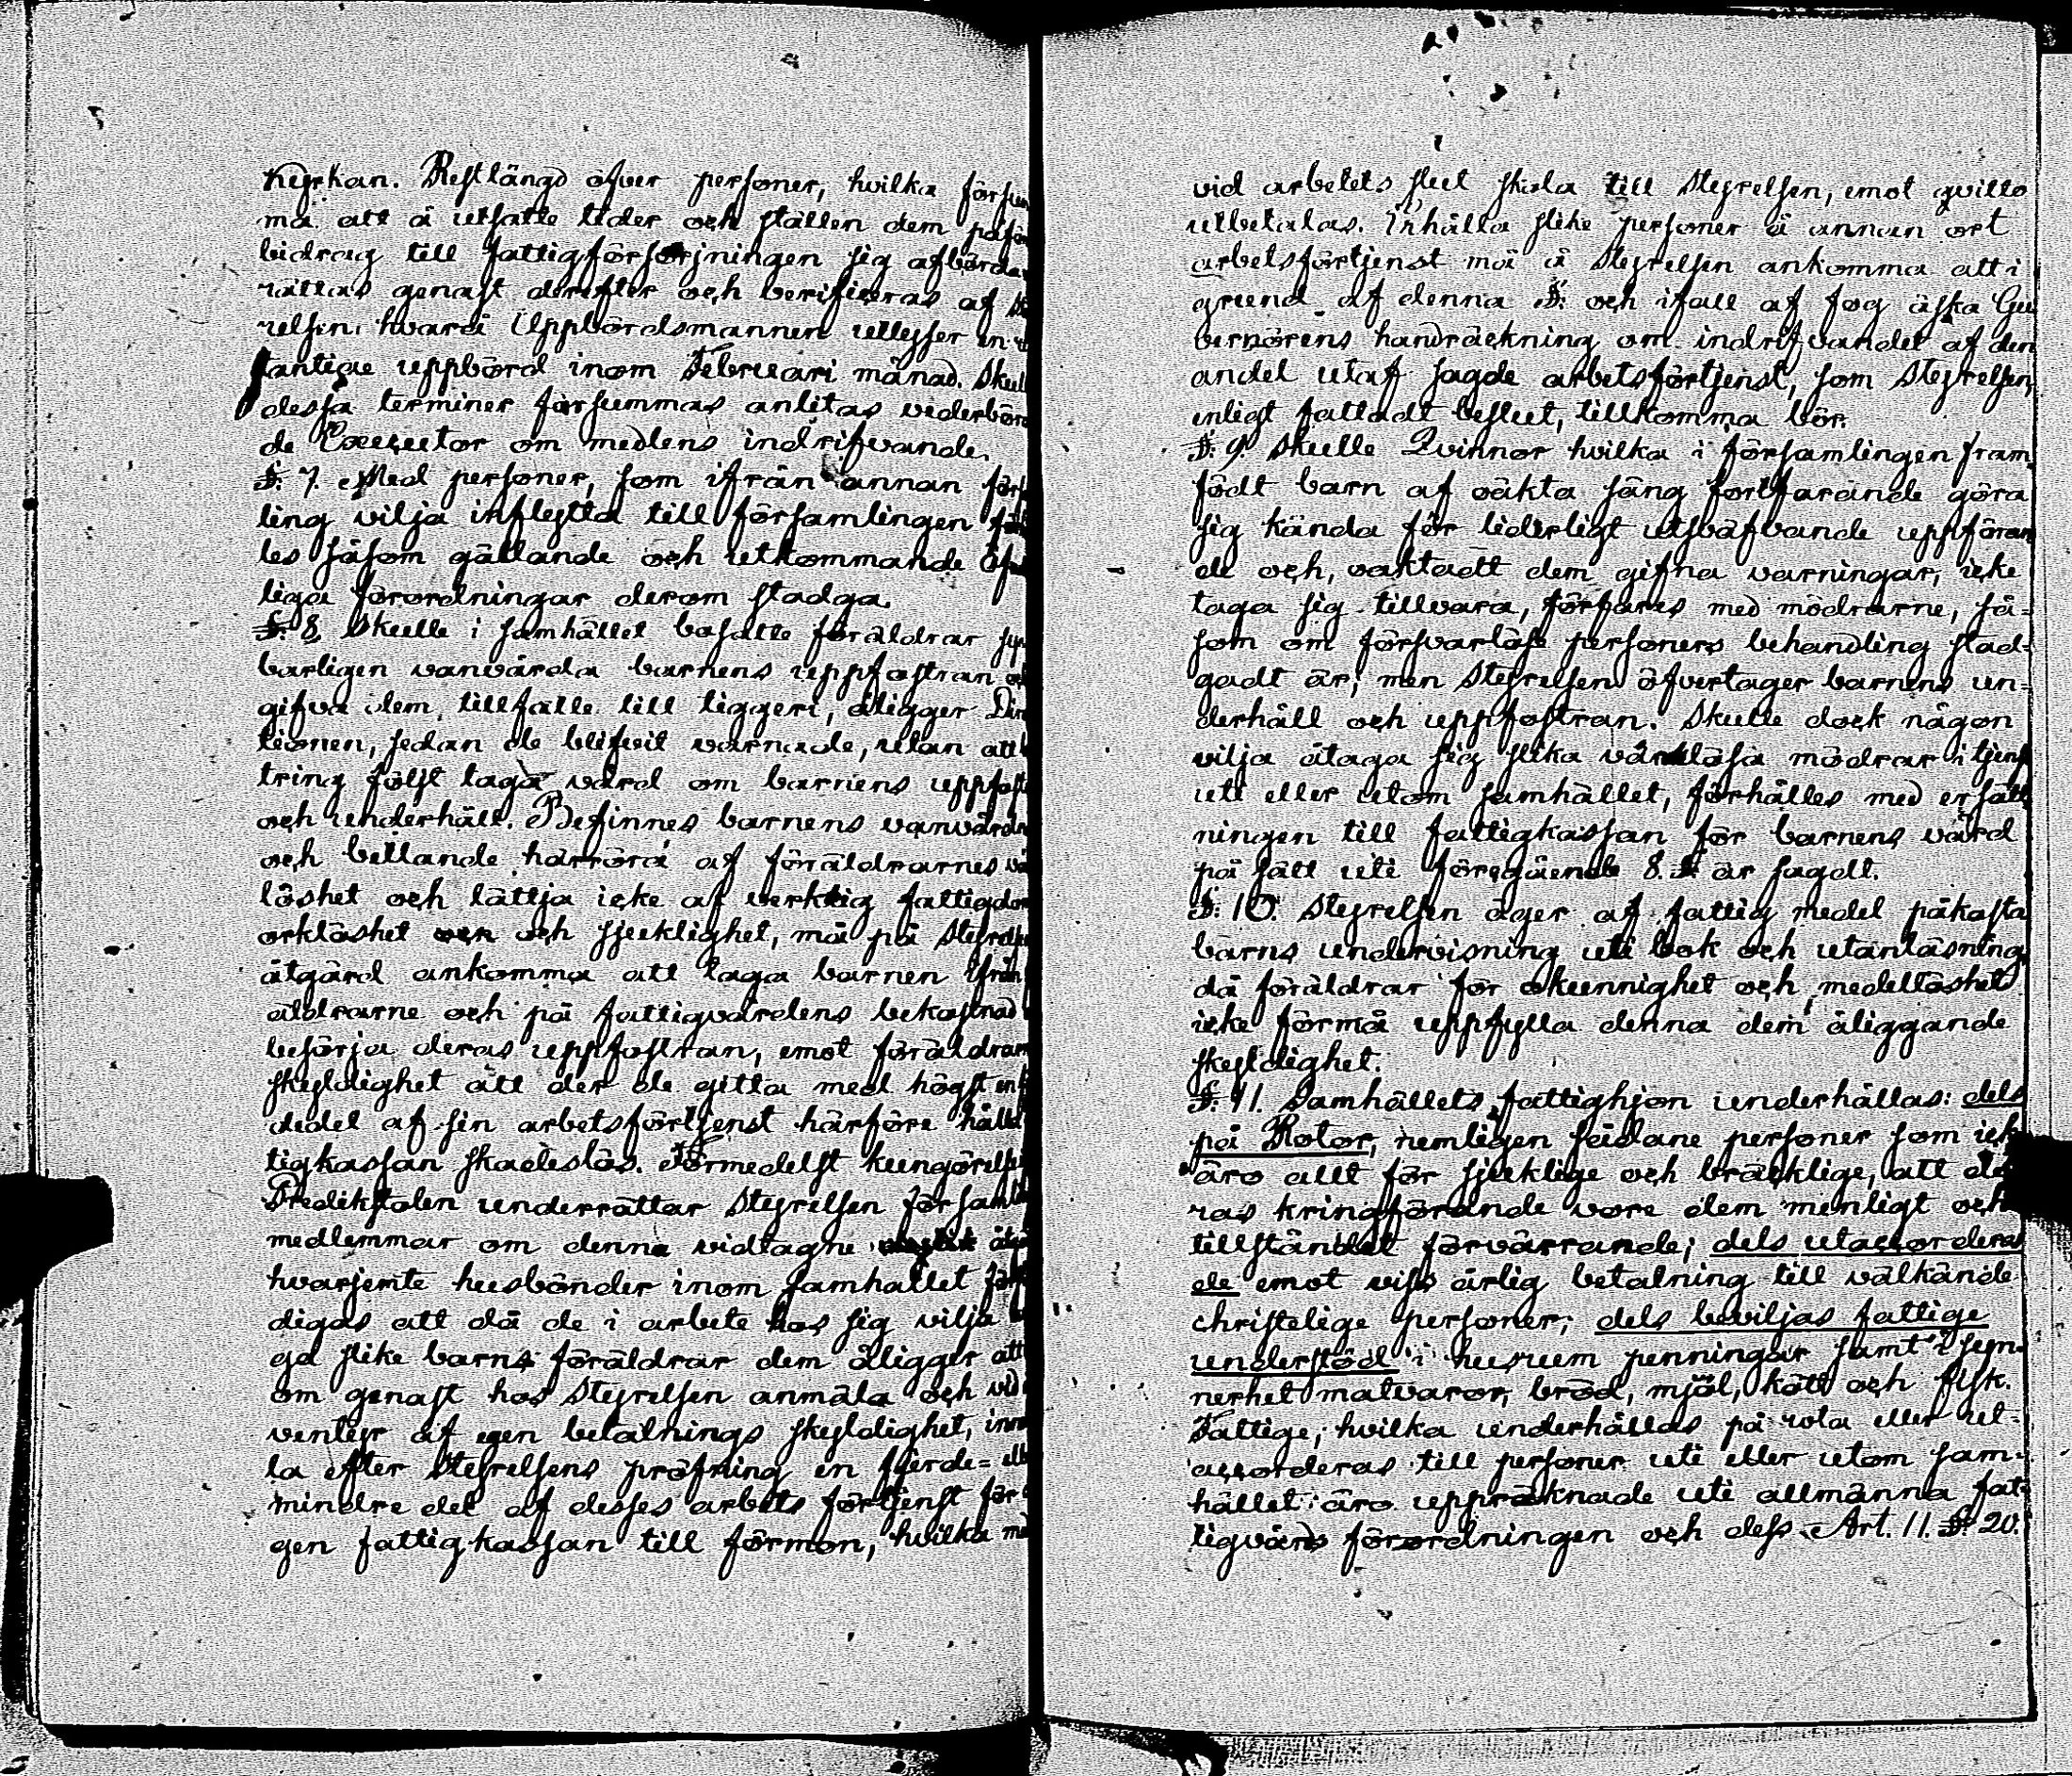 Kyrkan. Restlängd öfver personer, hvilka försum
ma att å utsatte tider och ställen dem påför
bidrag till fattigförsörjningen sig afbörda
rättas genast derefter och verificeras af
relsen, hvarå Uppbördsmannen utlyser en
tantige uppbörd inom Februari månad. Skul
dessa terminer försummas anlitas vederbör
de Executor om medlens indrifvande.
§. 7. Med personer, som ifrån annan förs
ling vilja inflytta till församlingen
les såsom gällande och utkommande
liga förordningar derom stadga.
§. 8. Skulle i samhället bosatte föräldrar
barligen vanvårda barnens uppfostran
gifva dem tillfälle till tiggeri, åligger Dir
tionen, sedan de blifvit varnade, utan att
tring följt taga vård om barnens uppfost
och underhåll. Befinnes barnens vanvård
och bettlande härröra af föräldrarnes
löshet och lättja icke af verklig fattigdom
orklöshet och sjuklighet, må på Styrelse
åtgärd ankomma att taga barnen ifrån
äldrarne och på fattigvårdens bekostnad
besörja deras uppfostran, emot föräldrar
skyldighet att der de gitta med högst en
dedel af sin arbetsförtjenst härföre hålla
tigkassan skadeslös. Förmedelst kungörelse
Predikstolen underrättar Styrelsen församl
medlemmar om denna vidtagne åtg
hvarjemte husbönder inom samhället
digas att då de i arbete hos sig vilja
ga slike barns föräldrar dem åligger att
om genast hos Styrelsen anmäla och vid
ventyr af egen betalnings skyldighet, inne
la efter Styrelsens pröfning en fjerde= ell
mindre del af desses arbets förtjenst för
gen fattigkassan till förmon, hvilka med
vid arbetets slut skola till Styrelsen, emot qvitto
utbetalas. Erhålla slike personer å annan ort
arbetsförtjenst må å Styrelsen ankomma att i
grund af denna §. och ifall af fog äska Gu
vernörens handräckning om indrifvandet af den
andel utaf sagde arbetsförtjenst, som Styrelsen,
enligt fattadt beslut, tillkomma bör.
§. 9. Skulle Qvinnor hvilka i församlingen fram
födt barn af oäkta säng fortfarande göra
sig kända för liderligt utsväfvande uppföran
de och, oaktadt dem gifna varningar, icke
taga sig tillvara, förfares med mödrarne, så=
som om försvarlöse personers behandling stad=
gadt är; men Styrelsen öfvertager barnens un=
derhåll och uppfostran. Skulle dock någon
vilja åtaga sig slika värnlösa mödrar i tjenst
uti eller utom samhället, förhålles med ersätt
ningen till fattigkassan för barnens vård
på sätt uti föregående 8. § är sagdt.
§. 10. Styrelsen äger af fattig medel påkosta
barns undervisning uti bok och utanläsning,
då föräldrar för okunnighet och medellöshet
icke förmå uppfylla denna dem åliggande
skyldighet.
§. 11. Samhällets fattighjon underhållas: dels
på Rotor, nemligen sådane personer som ick
äro allt för sjuklige och bräcklige, att de
ras kringförande vore dem menligt och
tillståndet förvärrande; dels utaccordera
de emot viss årlig betalning till välkände
christelige personer; dels beviljas fattige
understöd i husrum penningar samt i syn
nerhet matvaror, bröd, mjöl, kött och fisk.
Fattige, hvilka underhållas på rota eller ut=
accorderas till personer uti eller utom sam=
hället äro uppräknade uti allmänna fat=
tigvårds förordningen och dess Art. 11. §. 20.